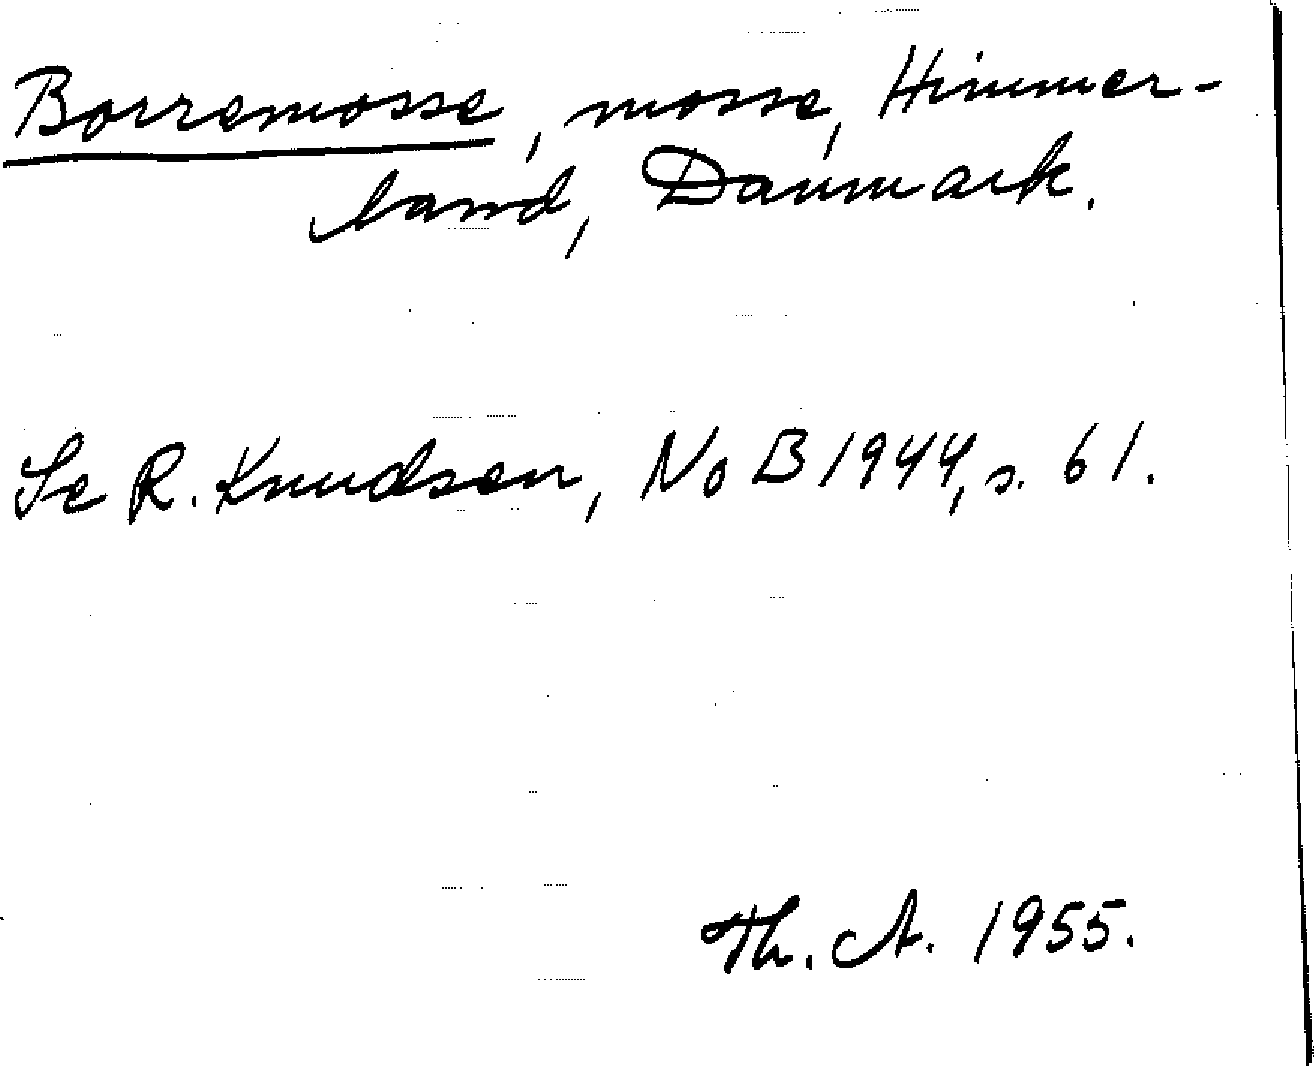 Borremosse, mosse, Himmer-
land, Danmark.
Se R. Knudsen, NoB 1944, s. 61.
Th. A. 1955.